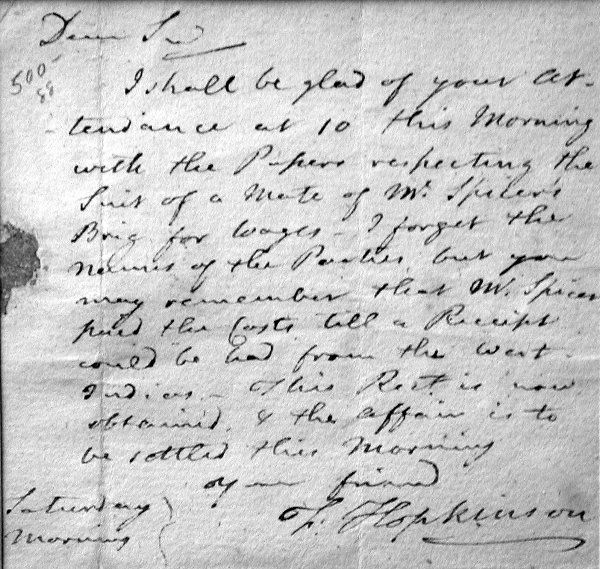 Dear Sir
500-
88
I shall be glad of your At-
tendance at 10 this Morning
with the Papers respecting the
Suit of a Mate of Mr. Spicer's
Brig for Wages - I forget the
Names of the Parties but you
may remember that Mr. Spicer
paid the Costs till a Receipt
could be had from the West-
Indies - This Rect is now
obtained, & the affair is to
be settled this Morning
Your friend
F. Hopkinson
Saturday
Morning